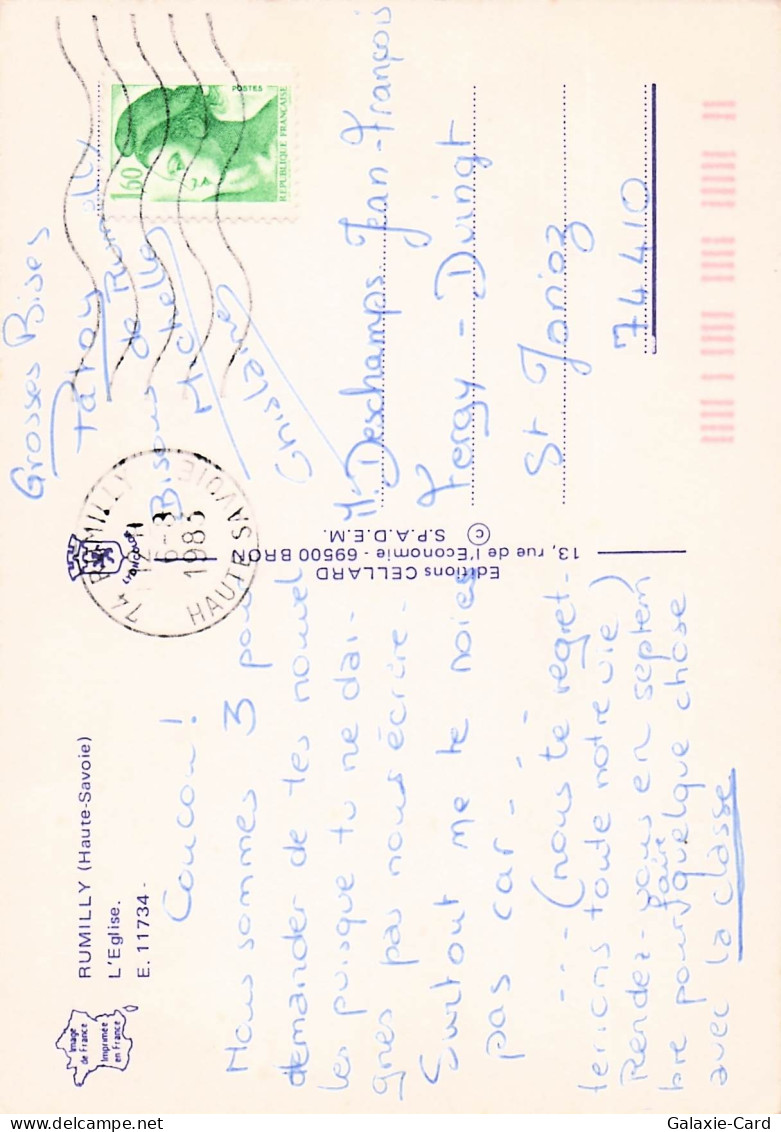 RUMILLY (Haute-Savoie)
L'Eglise.
E. 11734 -
Image
de France
Imprimée
en France
Coucou !
Nous sommes 3 pour
demander de tes nouvel
les puisque tu ne dai-
gnes pas nous écrire.
Surtout me te noies
pas car - -
... (nous te regret-
terions toute notre vie)
Rendez-vous en septem
bre pour faire quelque chose
avec la classe
Grosses Bises
de Rumilly
Bisous
Michelle
Ghislaine
Editions CELLARD
13, rue de l'Economie - 69500 BRON
© S.P.A.D.E.M.
LYONCOLOR
74 RUMILLY
6-8
1983
HAUTE SAVOIE
POSTES
1,60
REPUBLIQUE FRANÇAISE
M. Deschamps Jean-François
Duingt
St Jorioz
74410
Galaxie-Card